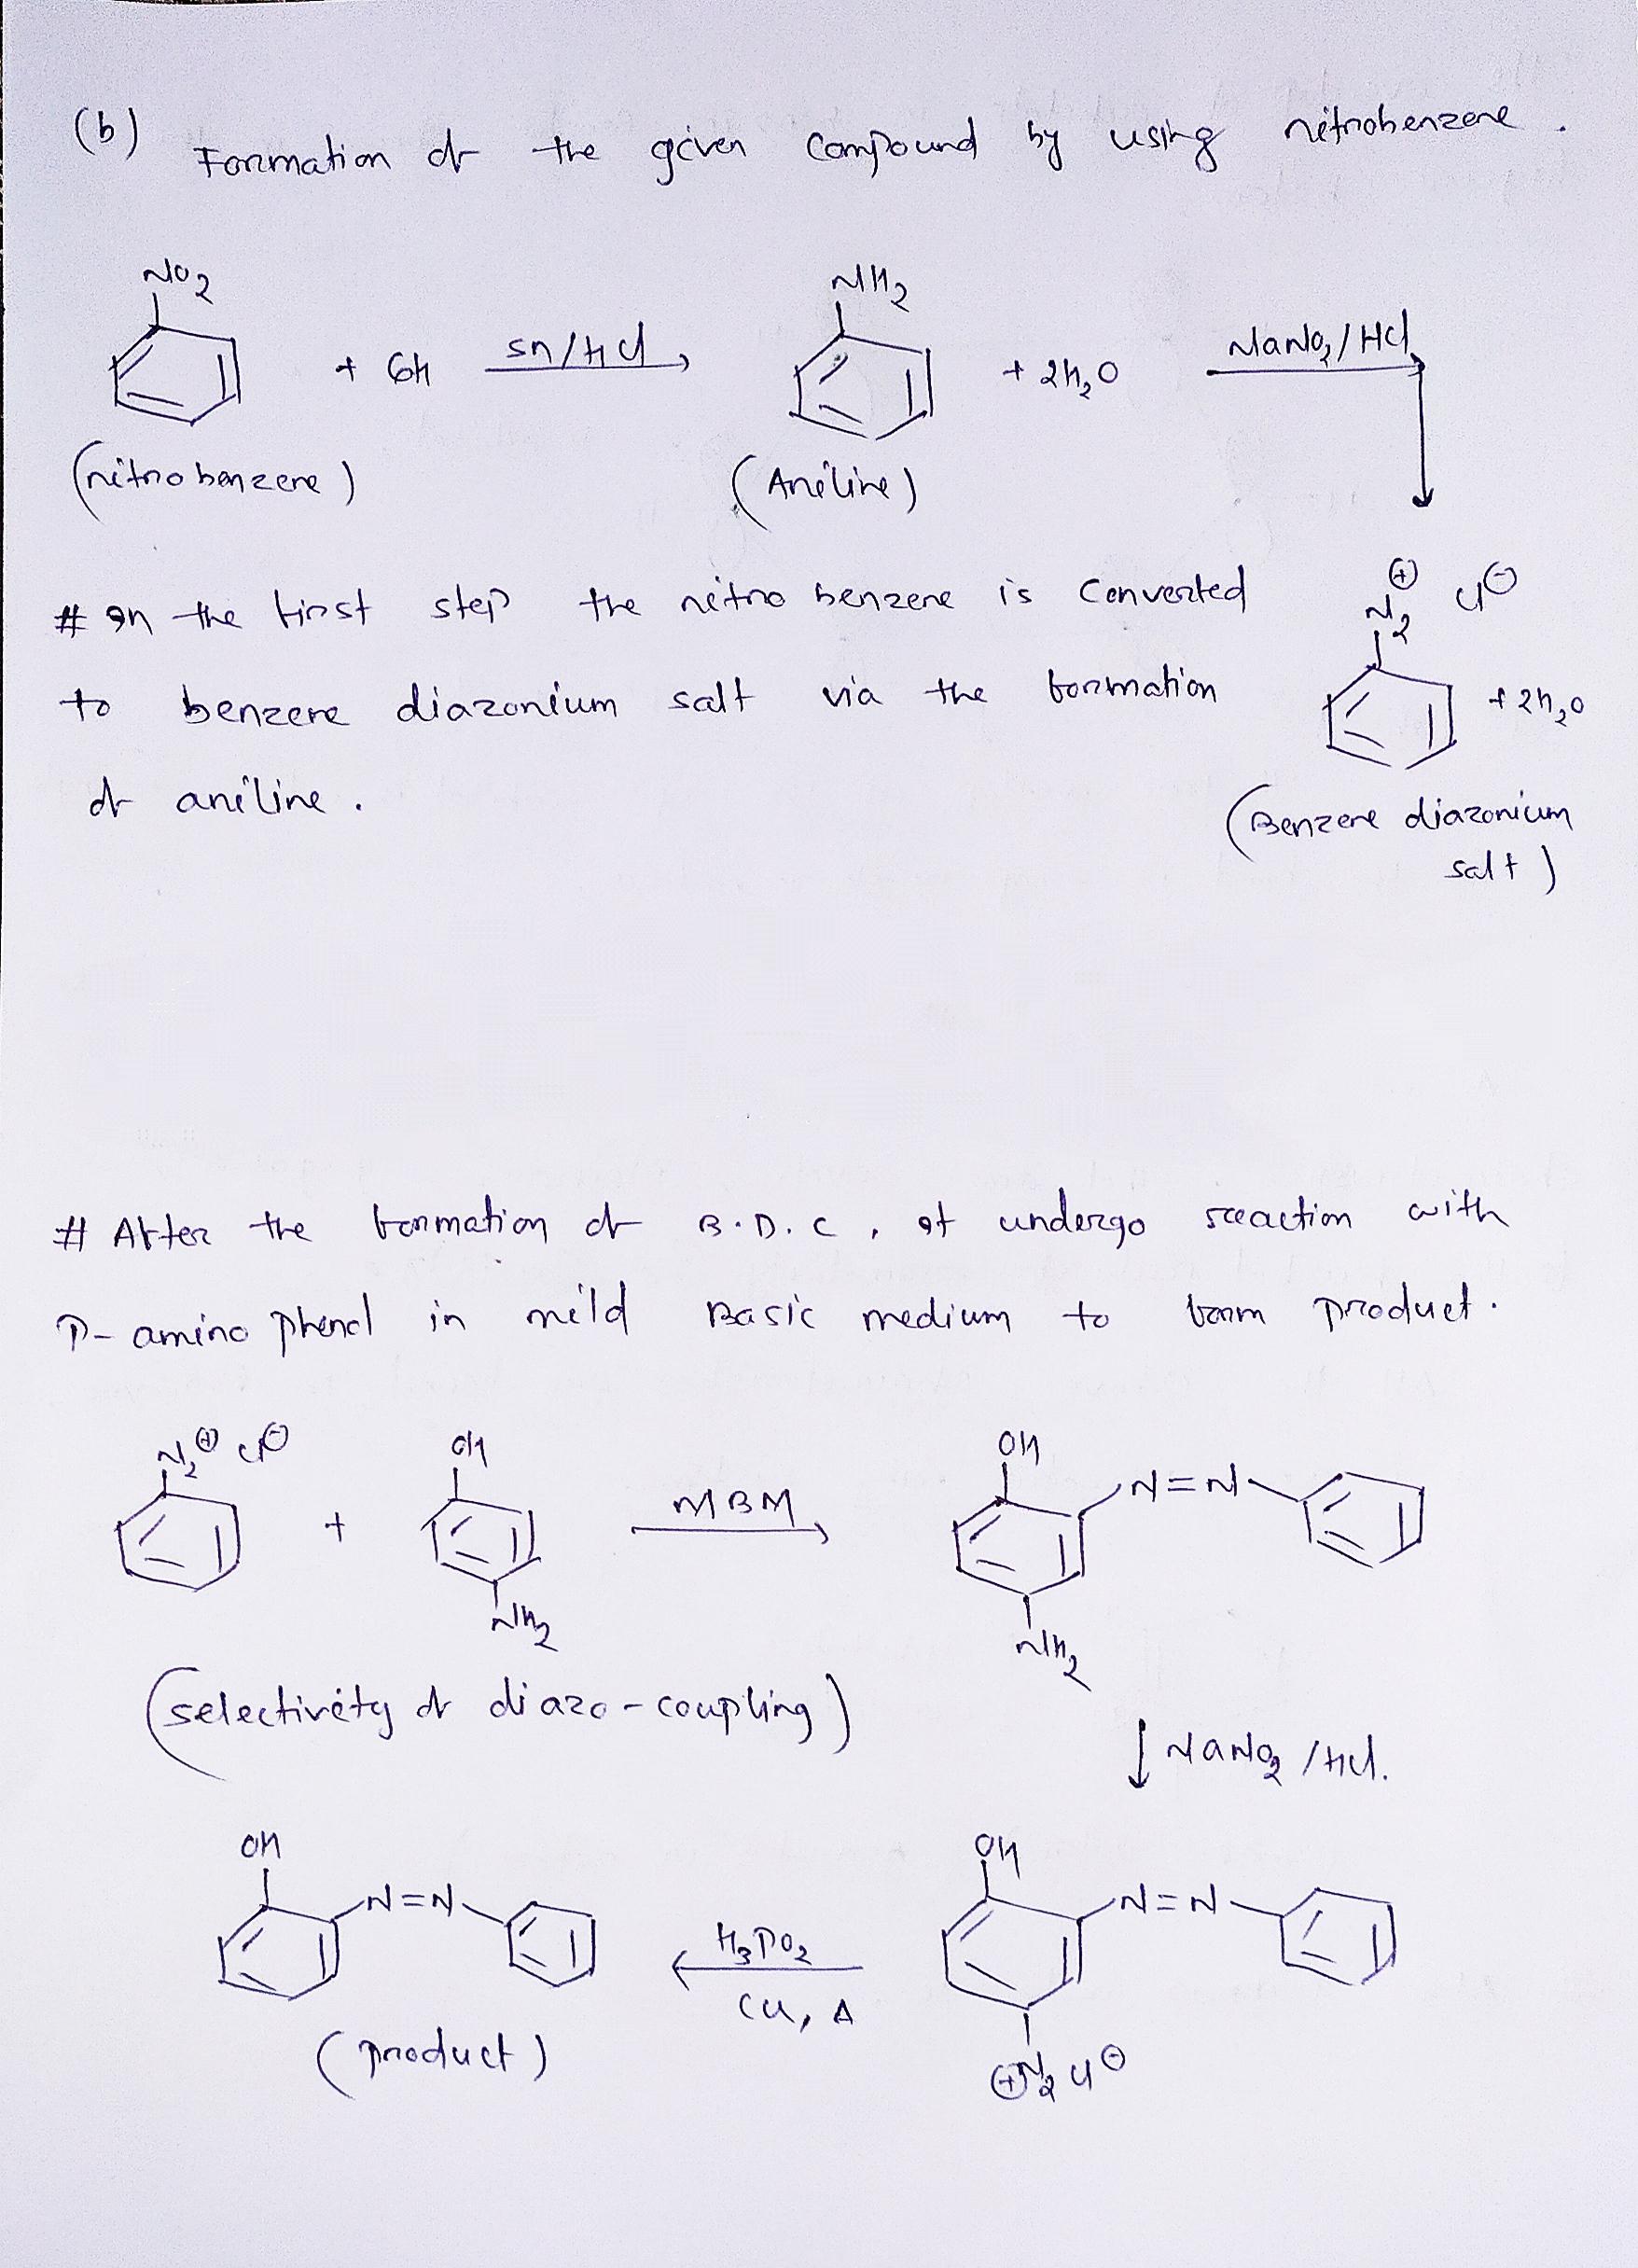 (b)
Formation of the given compound by using nitrobenzene.
NO2
NH2
+ 6H
Sn/HCl
+ 2H2O
NaNO2/HCl
(nitrobenzene)
(Aniline)
# In the first step the nitro benzene is converted
⊕
N2 Cl⊖
to benzene diazonium salt via the formation
+ 2H2O
of aniline.
(Benzene diazonium
salt)
# After the formation of B.D.C, It undergo reaction with
P-amino phenol in mild Basic medium to form product.
N2⊕ Cl⊖
OH
OH
N=N
+
MBM
NH2
NH2
(selectivity of diazo-coupling)
NaNO2 /HCl.
OH
OH
N=N
N=N
H3PO2
Cu, Δ
(Product)
⊕N2 Cl⊖